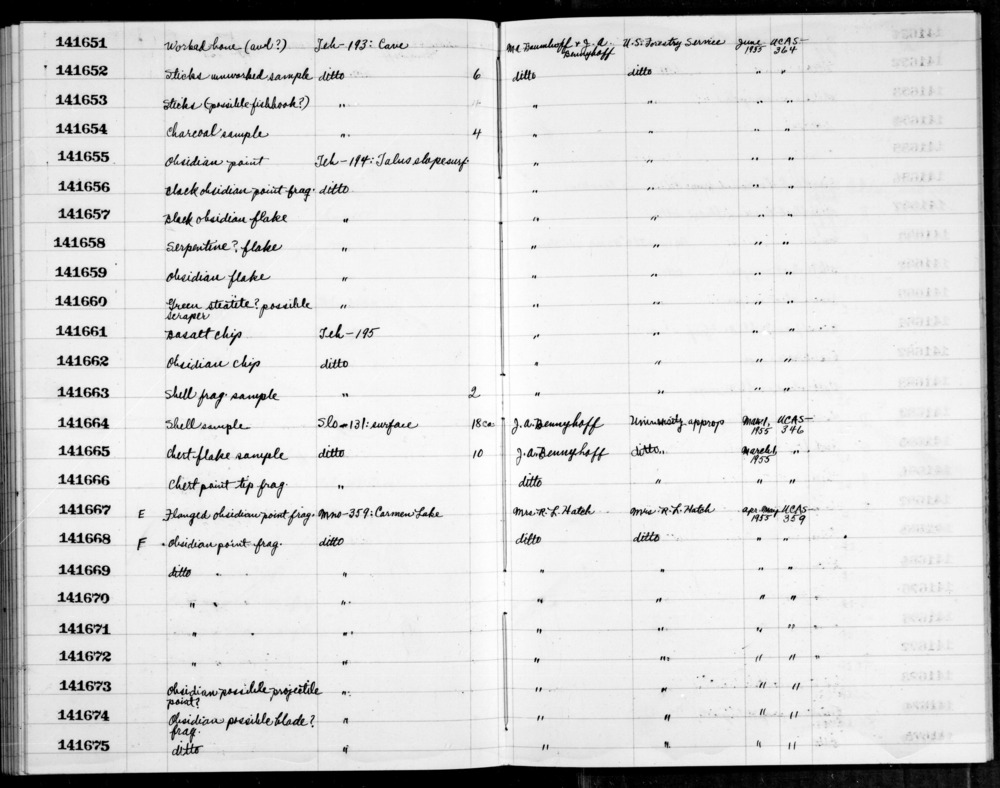 141651 Worked bone (awl?) Teh-193: Cave M.A. Baumhoff & J.A. Bennyhoff U.S. Forestry Service June 1955 UCAS-364
141652 Sticks unworked sample ditto 6 ditto ditto " "
141653 Sticks (possible fishhook?) " " " " "
141654 Charcoal sample " 4 " " " "
141655 Obsidian point Teh-194: Talus slope surf. " " " "
141656 Black obsidian point frag. ditto " " " "
141657 Black obsidian flake " " " " "
141658 Serpentine? flake " " " " "
141659 Obsidian flake " " " " "
141660 Green steatite? possible scraper " " " " "
141661 Basalt chip Teh-195 " " " "
141662 Obsidian chip ditto " " " "
141663 Shell frag. sample " 2 " " " "
141664 Shell sample Slo-131: surface 18ca J.A. Bennyhoff University approp Mar 1, 1955 UCAS-346
141665 Chert flake sample ditto 10 J.A. Bennyhoff ditto " March 1 1955 "
141666 Chert point tip frag. " ditto " " "
141667 E Flanged obsidian point frag. Mno-359: Carmen Lake Mrs. R.L. Hatch Mrs. R.L. Hatch Apr. May 1955 UCAS-359
141668 F Obsidian point frag. ditto ditto ditto " "
141669 ditto " " " " "
141670 " " " " " "
141671 " " " " " "
141672 " " " " " "
141673 Obsidian possible projectile point? " " " " "
141674 Obsidian possible blade? frag. " " " " "
141675 ditto " " " " "